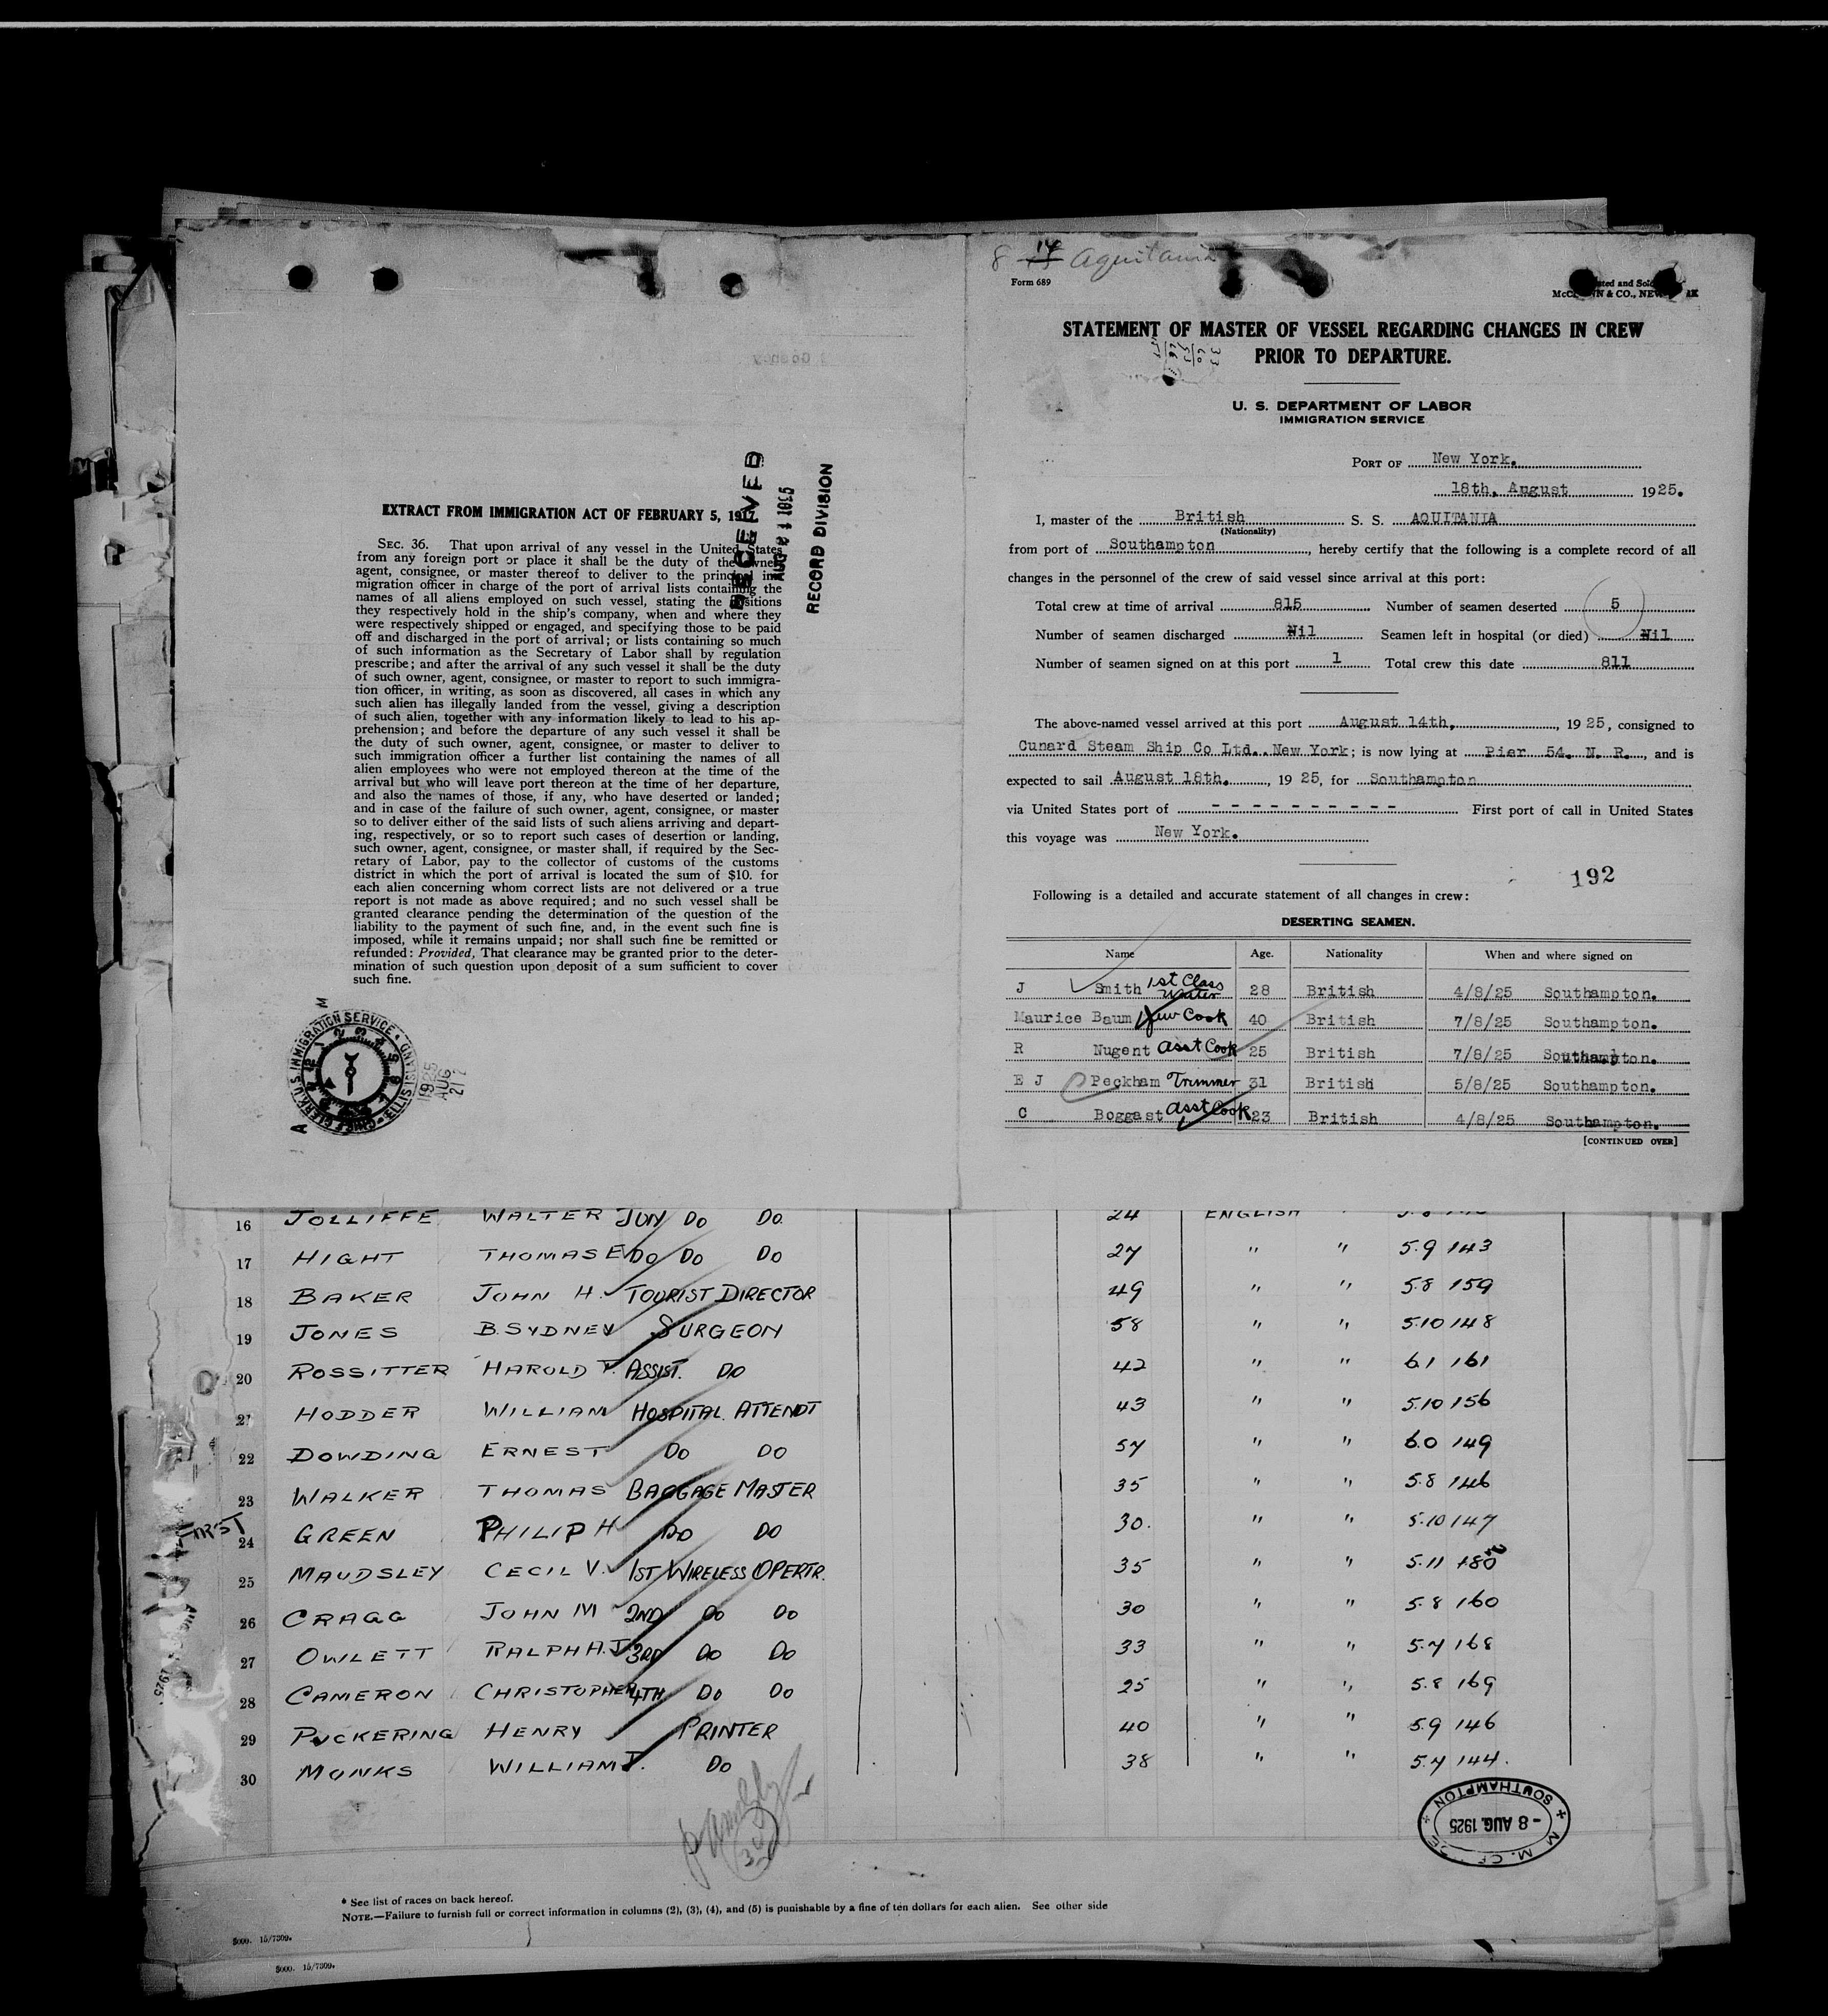 8 14 Aquitania
Form 689
STATEMENT OF MASTER OF VESSEL REGARDING CHANGES IN CREW
PRIOR TO DEPARTURE.
U. S. DEPARTMENT OF LABOR
IMMIGRATION SERVICE
PORT OF New York.
18th, August 1925.
I, master of the British S. S. AQUITANIA
(Nationality)
from port of Southampton, hereby certify that the following is a complete record of all
changes in the personnel of the crew of said vessel since arrival at this port:
Total crew at time of arrival 815 Number of seamen deserted 5
Number of seamen discharged Nil Seamen left in hospital (or died) Nil
Number of seamen signed on at this port 1 Total crew this date 811
The above-named vessel arrived at this port August 14th, 1925, consigned to
Cunard Steam Ship Co Ltd. New York; is now lying at Pier 54. N. R., and is
expected to sail August 18th. , 1925, for Southampton
via United States port of - - - - - - - - - - First port of call in United States
this voyage was New York.
192
Following is a detailed and accurate statement of all changes in crew:
DESERTING SEAMEN.
Name Age. Nationality When and where signed on
J Smith 1st Class Waiter 28 British 4/8/25 Southampton.
Maurice Baum Jew Cook 40 British 7/8/25 Southampton.
R Nugent Asst Cook 25 British 7/8/25 Southampton.
E J Peckham Trimmer 31 British 5/8/25 Southampton.
C Boggast Asst Cook 23 British 4/8/25 Southampton.
[CONTINUED OVER]
EXTRACT FROM IMMIGRATION ACT OF FEBRUARY 5, 1917
SEC. 36. That upon arrival of any vessel in the United States
from any foreign port or place it shall be the duty of the owner,
agent, consignee, or master thereof to deliver to the principal im-
migration officer in charge of the port of arrival lists containing the
names of all aliens employed on such vessel, stating the positions
they respectively hold in the ship's company, when and where they
were respectively shipped or engaged, and specifying those to be paid
off and discharged in the port of arrival; or lists containing so much
of such information as the Secretary of Labor shall by regulation
prescribe; and after the arrival of any such vessel it shall be the duty
of such owner, agent, consignee, or master to report to such immigra-
tion officer, in writing, as soon as discovered, all cases in which any
such alien has illegally landed from the vessel, giving a description
of such alien, together with any information likely to lead to his ap-
prehension; and before the departure of any such vessel it shall be
the duty of such owner, agent, consignee, or master to deliver to
such immigration officer a further list containing the names of all
alien employees who were not employed thereon at the time of the
arrival but who will leave port thereon at the time of her departure,
and also the names of those, if any, who have deserted or landed;
and in case of the failure of such owner, agent, consignee, or master
so to deliver either of the said lists of such aliens arriving and depart-
ing, respectively, or so to report such cases of desertion or landing,
such owner, agent, consignee, or master shall, if required by the Sec-
retary of Labor, pay to the collector of customs of the customs
district in which the port of arrival is located the sum of $10. for
each alien concerning whom correct lists are not delivered or a true
report is not made as above required; and no such vessel shall be
granted clearance pending the determination of the question of the
liability to the payment of such fine, and, in the event such fine is
imposed, while it remains unpaid; nor shall such fine be remitted or
refunded: Provided, That clearance may be granted prior to the deter-
mination of such question upon deposit of a sum sufficient to cover
such fine.
RECEIVED
AUG 21 1925
RECORD DIVISION
CHIEF CLERK U.S. IMMIGRATION SERVICE ELLIS ISLAND
1925
AUG
21
16 JOLLIFFE WALTER JUN DO DO. 24 ENGLISH
17 HIGHT THOMAS E DO DO DO 27 " " 5.9 143
18 BAKER JOHN H. TOURIST DIRECTOR 49 " " 5.8 159
19 JONES B. SYDNEY SURGEON 58 " " 5.10 148
20 ROSSITTER HAROLD T. ASSIST. DO 42 " " 6.1 161
21 HODDER WILLIAM HOSPITAL ATTENDT 43 " " 5.10 156
22 DOWDING ERNEST DO DO 57 " " 6.0 149
23 WALKER THOMAS BAGGAGE MASTER 35 " " 5.8 146
24 GREEN PHILIP H DO DO 30. " " 5.10 147
25 MAUDSLEY CECIL V. 1ST WIRELESS OPERTR. 35 " " 5.11 180
26 CRAGG JOHN M 2ND DO DO 30 " " 5.8 160
27 OWLETT RALPH A. J. 3RD DO DO 33 " " 5.7 168
28 CAMERON CHRISTOPHER 4TH DO DO 25 " " 5.8 169
29 PUCKERING HENRY PRINTER 40 " " 5.9 146
30 MONKS WILLIAM T. DO 38 " " 5.7 144.
SOUTHAMPTON
- 8 AUG. 1925
* See list of races on back hereof.
NOTE.—Failure to furnish full or correct information in columns (2), (3), (4), and (5) is punishable by a fine of ten dollars for each alien. See other side
5000. 15/7309.
5000. 15/7309.